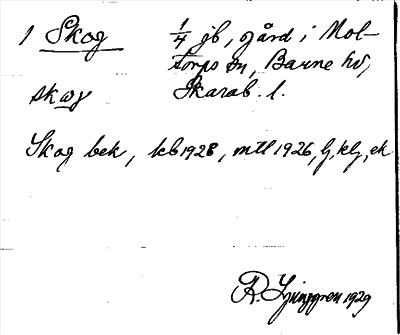 1 Skog 1/4 jb, gård i Mol-
torps sn, Barne hd,
skωγ Skarab. l.
Skog bek, kb 1928, mtl 1926, lj, klj, ek
R. Ljunggren 1929